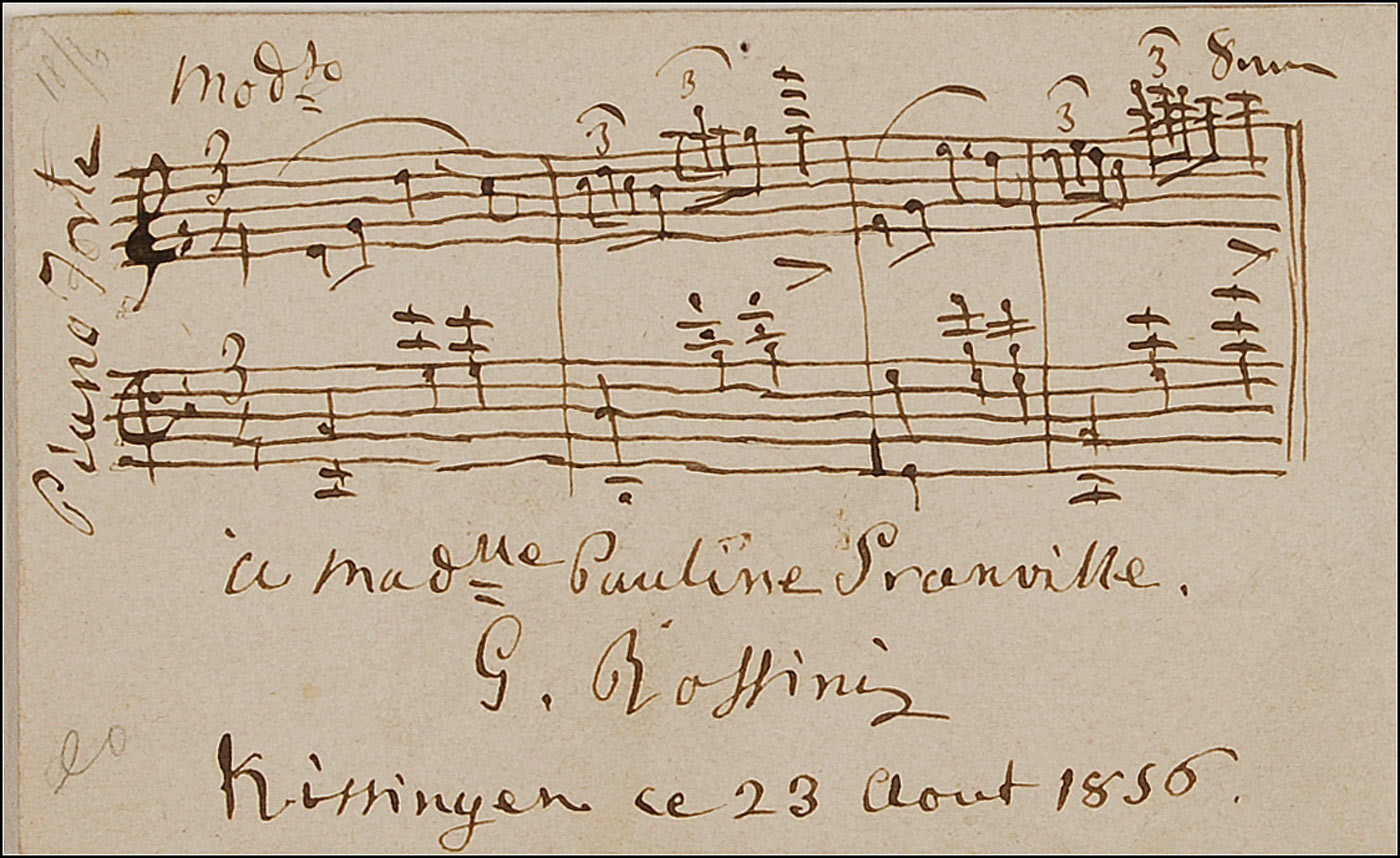 Mod.to
Piano Forte
3 4
3 3 3 3
3 4
à Mad.lle Pauline Pranville.
G. Rossini
Kissingen ce 23 Aout 1856.